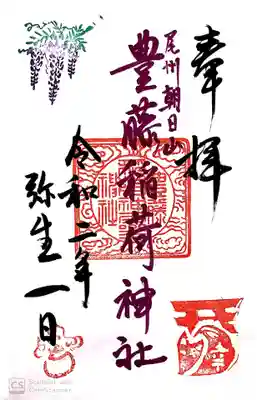 奉拝
尾州朝日山
豊藤稲荷神社
令和二年
弥生一日
CS